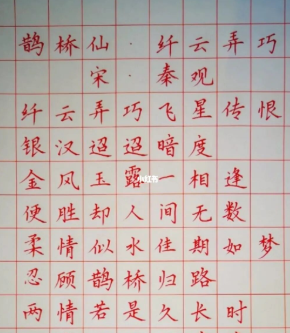 鹊桥仙·纤云弄巧
宋·秦观
纤云弄巧飞星传恨
银汉迢迢暗度
金风玉露一相逢
便胜却人间无数
柔情似水佳期如梦
忍顾鹊桥归路
两情若是久长时
小红书